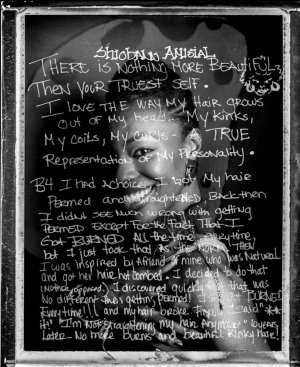 There is Nothing More Beautiful
Then Your Truest Self.
I love the way My Hair grows
Out of My head... My Kinks,
My Coils, My Curls - TRUE
Representation of My Personality.
B4 I had Achoice I got My hair
Permed and straightened, Back then
I didnt see Much wrong with getting
Permed Except For the Fact That I
Got BURNED All the time everytime
but I just took that As the Norm. Then
I was inspired by A friend of mine who was Natural
and got her hair hot combed. I decided to do that
I discovered quickly that that was
No different Then getting Permed! I still got BURNED
Everytime!!! and my hair broke. Finally I said
it!" I'm Not straightening my hair Anymore."
Later No more burns and beautiful Kinky Hair!